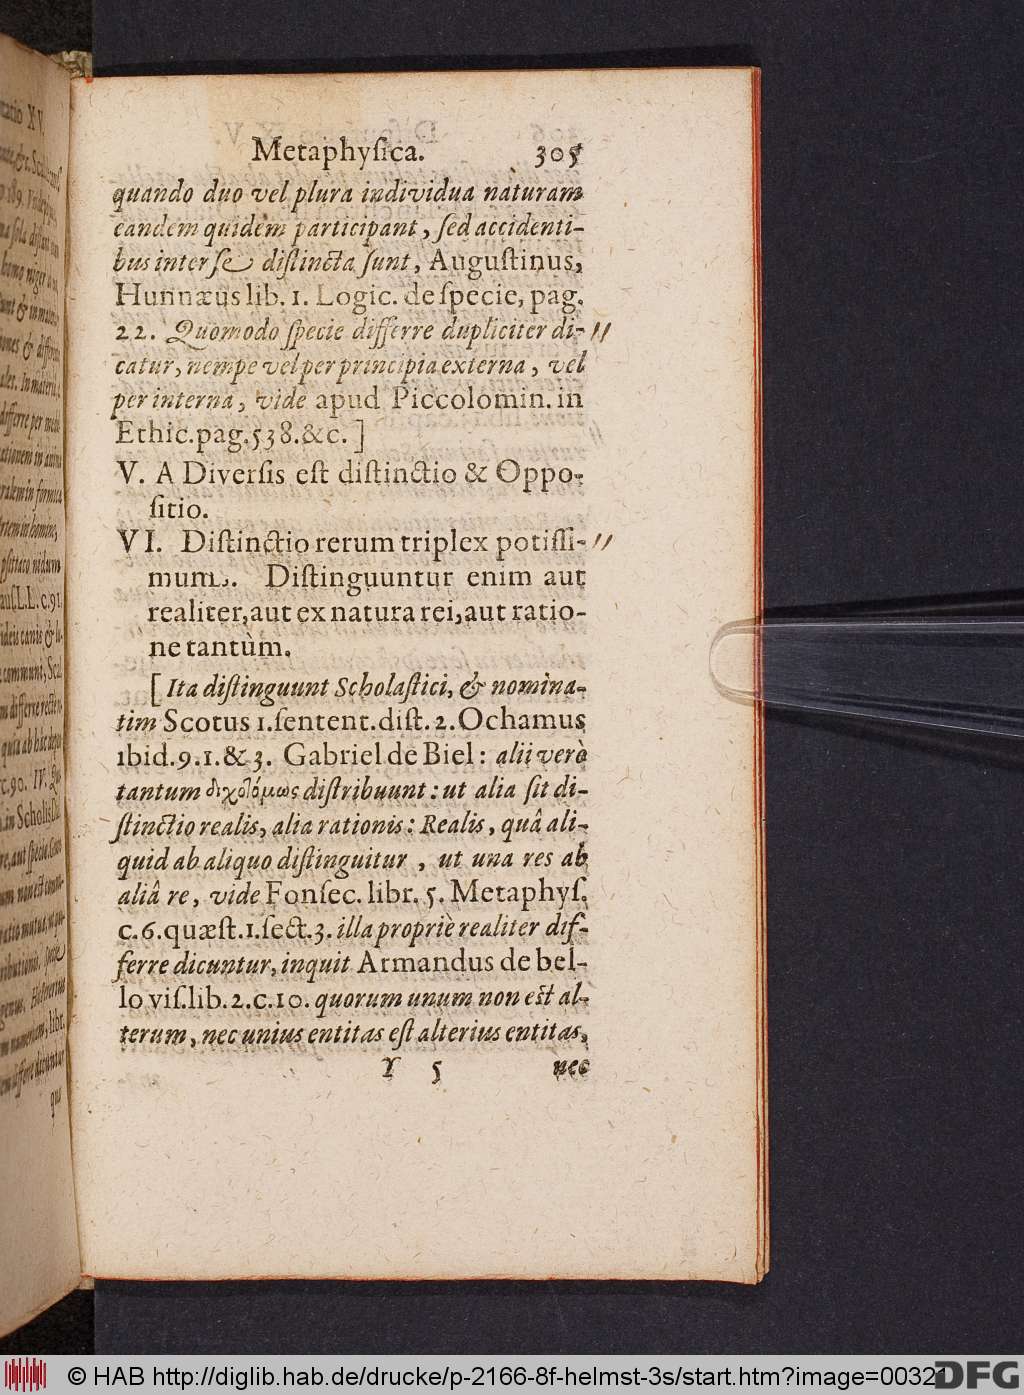 Metaphyſica. 305
quando duo vel plura individua naturam
eandem quidèm participant, ſed accidenti-
bus inter ſe diſtincta ſunt, Auguſtinus,
Hunnæus lib. 1. Logic. de ſpecie, pag.
22. Quomodo ſpecie differre dupliciter di-
catur, nempe vel per principia externa, vel
per interna, vide apud Piccolomin. in
Ethic. pag. 538. &c. ]
V. A Diverſis eſt diſtinctio & Oppo-
ſitio.
VI. Diſtinctio rerum triplex potiſſi-
mum. Diſtinguuntur enim aut
realiter, aut ex natura rei, aut ratio-
ne tantùm.
[ Ita diſtinguunt Scholaſtici, & nomina-
tim Scotus 1. ſentent. diſt. 2. Ochamus
ibid. 9. 1. & 3. Gabriel de Biel: alii verò
tantum διχοτόμως diſtribuunt: ut alia ſit di-
ſtinctio realis, alia rationis: Realis, quâ ali-
quid ab aliquo diſtinguitur, ut una res ab
aliâ re, vide Fonſec. libr. 5. Metaphyſ.
c. 6. quæſt. 1. ſect. 3. illa propriè realiter dif-
ferre dicuntur, inquit Armandus de bel-
lo viſ. lib. 2. c. 10. quorum unum non eſt al-
terum, nec unius entitas eſt alterius entitas,
Y 5 nec
© HAB http://diglib.hab.de/drucke/p-2166-8f-helmst-3s/start.htm?image=00321
DFG